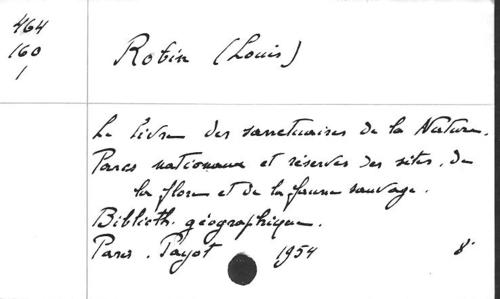 464
160
1
Robin (Louis)
Le Livre des sanctuaires de la Nature.
Parcs nationaux et réserves des sites, de
la flore et de la faune sauvage.
Biblioth. géographique.
Paris. Payot 1954 8°